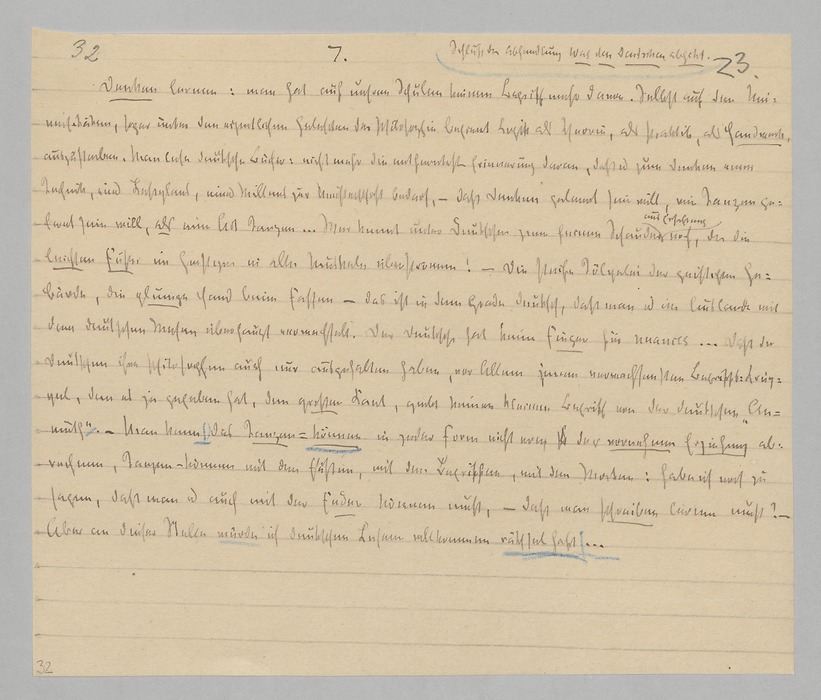 32
7.
Schluß der Abhandlung Was den Deutschen abgeht.
23.
Denken lernen: man hat auf unsren Schulen keinen Begriff mehr davon. Selbst auf den Uni-
versitäten, sogar unter den eigentlichen Gelehrten der Philosophie beginnt Logik als Theorie, als Praktik, als Handwerk,
auszusterben. Man lese deutsche Bücher: nicht mehr die entfernteste Erinnerung daran, daß es zum Denken einer
Technik, eines Lehrplans, eines Willens zur Meisterschaft bedarf, – daß Denken gelernt sein will, wie Tanzen ge-
lernt sein will, als eine Art Tanzen ... Wer kennt unter Deutschen jenen feinen Schauder aus Erfahrung noch, den die
leichten Füße im Geistigen in alle Muskeln überströmen! – Die steife Tölpelei der geistigen Ge-
bärde, die plumpe Hand beim Fassen – das ist in dem Grade deutsch, daß man es im Auslande mit
dem deutschen Wesen überhaupt verwechselt. Der Deutsche hat keine Finger für nuances ... Daß die
Deutschen ihre Philosophen auch nur ausgehalten haben, vor Allem jenen verwachsensten Begriffs-Krüp-
pel, den es je gegeben hat, den großen Kant, giebt keinen kleinen Begriff von der deutschen „An-
muth“. – Man kann das Tanzen-können in jeder Form nicht von der vornehmen Erziehung ab-
rechnen, Tanzen-können mit den Füßen, mit den Begriffen, mit den Worten: habe ich noch zu
sagen, daß man es auch mit der Feder können muß, – daß man schreiben lernen muß? –
Aber an dieser Stelle würde ich deutschen Lesern vollkommen räthselhaft ...
32